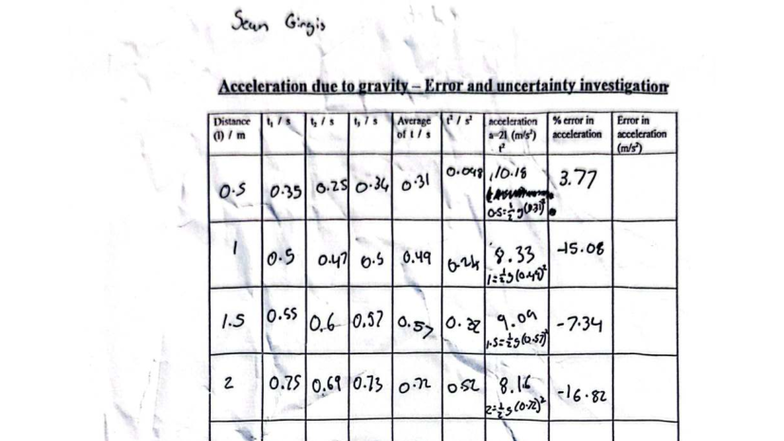 Sean Girgis
Acceleration due to gravity – Error and uncertainty investigation
Distance (l) / m t₁ / s t₂ / s t₃ / s Average of t / s t² / s² acceleration a=2l (m/s²) t² % error in acceleration Error in acceleration (m/s²)
0.5 0.35 0.25 0.34 0.31 0.048 10.18 3.77
0.5=½g(0.31)²
1 0.5 0.47 0.5 0.49 0.24 8.33 -15.08
1=½g(0.49)²
1.5 0.55 0.6 0.57 0.57 0.32 9.09 -7.34
1.5=½g(0.57)²
2 0.75 0.69 0.73 0.72 0.52 8.16 -16.82
2=½g(0.72)²